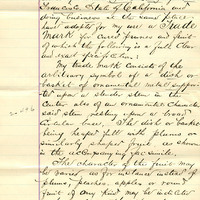 Francisco State of California and
doing business at the same place
have adopted for my use a Trade
Mark for cured prunes and fruit
of which the following is a full clear
and exact specification:
My trade mark consists of the
arbitrary symbol of a dish or
basket of ornamental metal suppor-
ted upon a slender stem in the
center also of an ornamental character
said stem resting upon a broad
circular base. The dish or basket
being heaped full with plums or
similarly shaped fruit as shown
in the accompanying facsimile.
The character of the fruit may
be varied as for instance instead of
plums, peaches, apples or round
fruit of any kind may be selected